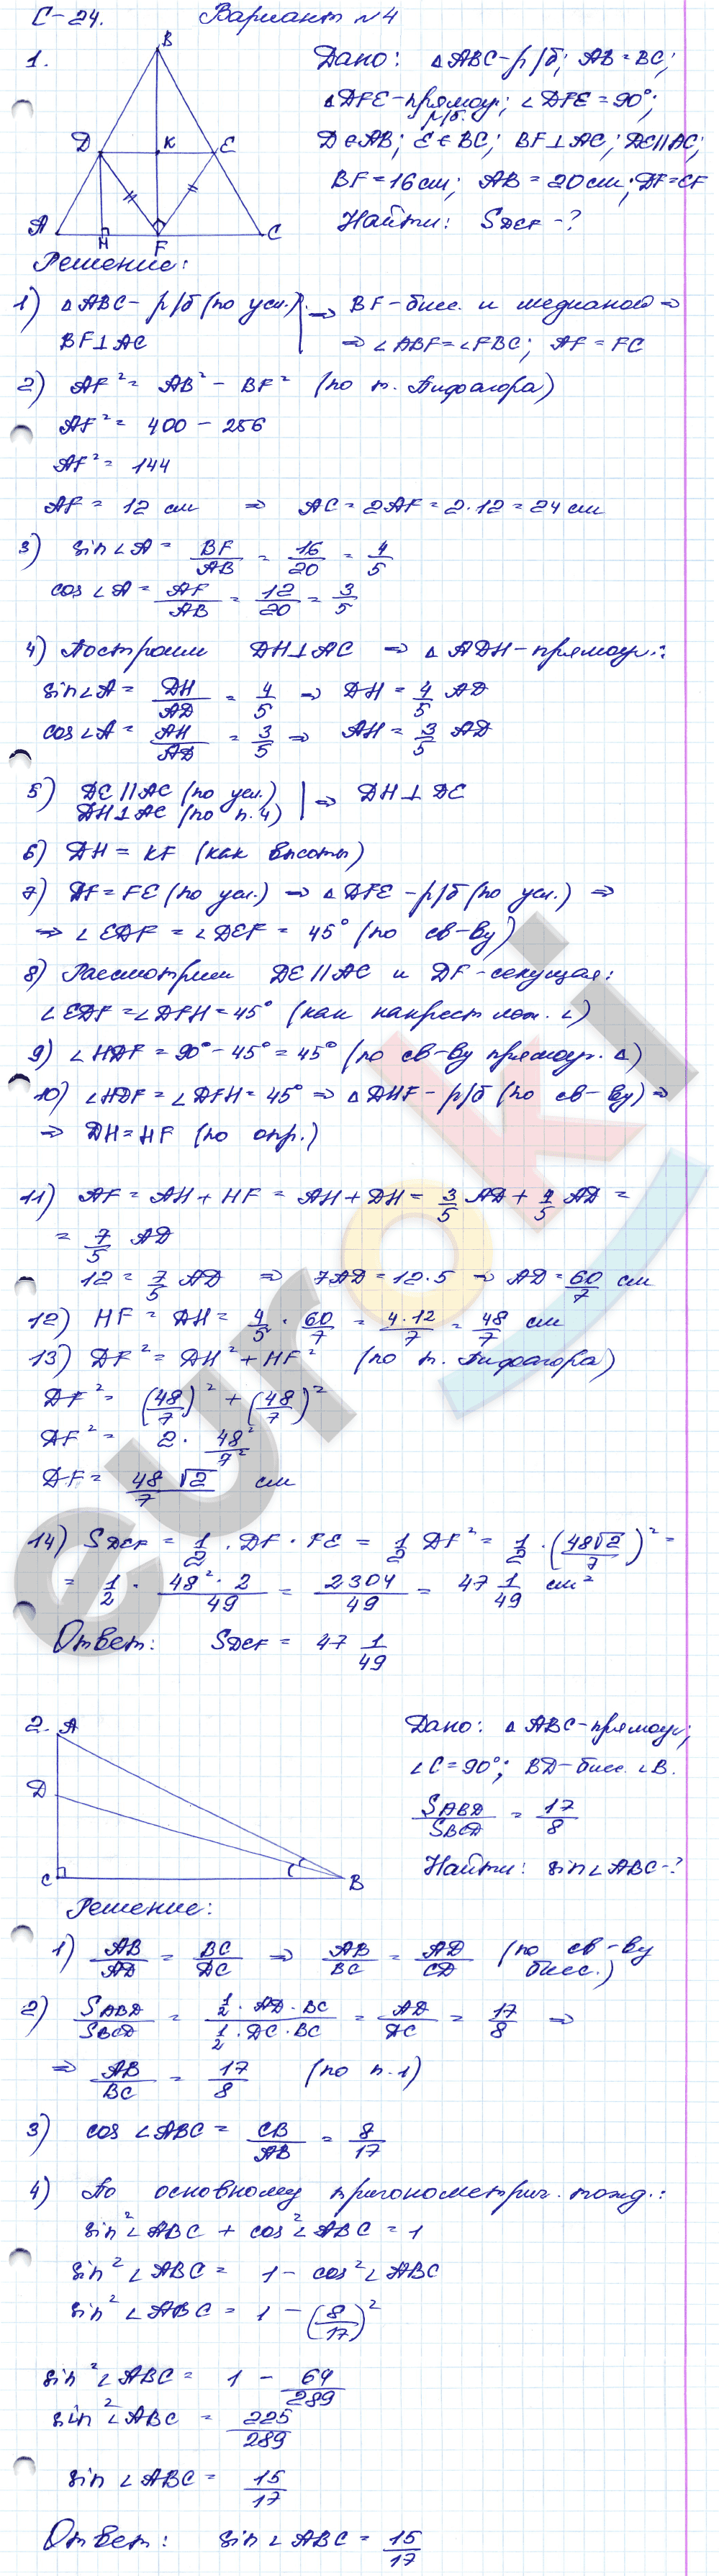 С-24. Вариант №4
1.
B
D K E
A H F C
Дано: △ABC-р/б; AB=BC;
△DFE-прямоуг; ∠DFE=90°;
р/б.
D∈AB; E∈BC; BF⊥AC; DE||AC;
BF=16см; AB=20см; DF=EF
Найти: SDEF-?
Решение:
1) △ABC-р/б (по усл.) ⇒ BF-бисс. и медианой ⇒
BF⊥AC ⇒ ∠ABF=∠FBC; AF=FC
2) AF²= AB²- BF² (по т. Пифагора)
AF²= 400-256
AF²= 144
AF= 12 см ⇒ AC=2AF=2·12=24см
3) sin∠A= BF/AB = 16/20 = 4/5
cos∠A= AF/AB = 12/20 = 3/5
4) Построим DH⊥AC ⇒ △ADH-прямоуг.:
sin∠A= DH/AD = 4/5 ⇒ DH= 4/5 AD
cos∠A= AH/AD = 3/5 ⇒ AH= 3/5 AD
5) DE||AC (по усл.) ⇒ DH⊥DE
DH⊥AC (по п.4)
6) DH=KF (как высоты)
7) DF=FE (по усл.) ⇒ △DFE-р/б (по усл.) ⇒
⇒ ∠EDF=∠DEF=45° (по св-ву)
8) Рассмотрим DE||AC и DF-секущая:
∠EDF=∠DFH=45° (как накрест леж. ∠)
9) ∠HDF=90°-45°=45° (по св-ву прямоуг. △)
10) ∠HDF=∠DFH=45° ⇒ △DHF-р/б (по св-ву) ⇒
⇒ DH=HF (по опр.)
11) AF=AH+HF=AH+DH= 3/5 AD+ 4/5 AD =
= 7/5 AD
12= 7/5 AD ⇒ 7AD=12·5 ⇒ AD= 60/7 см
12) HF=DH= 4/5 · 60/7 = 4·12/7 = 48/7 см
13) DF²=DH²+HF² (по т. Пифагора)
DF²= (48/7)² + (48/7)²
DF²= 2· 48²/7²
DF= 48√2/7 см
14) SDEF= 1/2 · DF·FE = 1/2 DF²= 1/2 ·(48√2/7)²=
= 1/2 · 48²·2/49 = 2304/49 = 47 1/49 см²
Ответ: SDEF= 47 1/49
euroki
2. A
D
C B
Дано: △ABC-прямоуг;
∠C=90°; BD-бисс. ∠B.
SABD/SBCD = 17/8
Найти: sin∠ABC-?
Решение:
1) AB/AD = BC/DC ⇒ AB/BC = AD/CD (по св-ву
бисс.)
2) SABD/SBCD = 1/2·AD·BC / 1/2·DC·BC = AD/DC = 17/8 ⇒
⇒ AB/BC = 17/8 (по п.1)
3) cos∠ABC= CB/AB = 8/17
4) По основному тригонометрич. тожд.:
sin²∠ABC + cos²∠ABC=1
sin²∠ABC= 1-cos²∠ABC
sin²∠ABC= 1-(8/17)²
sin²∠ABC= 1- 64/289
sin²∠ABC = 225/289
sin∠ABC= 15/17
Ответ: sin∠ABC= 15/17